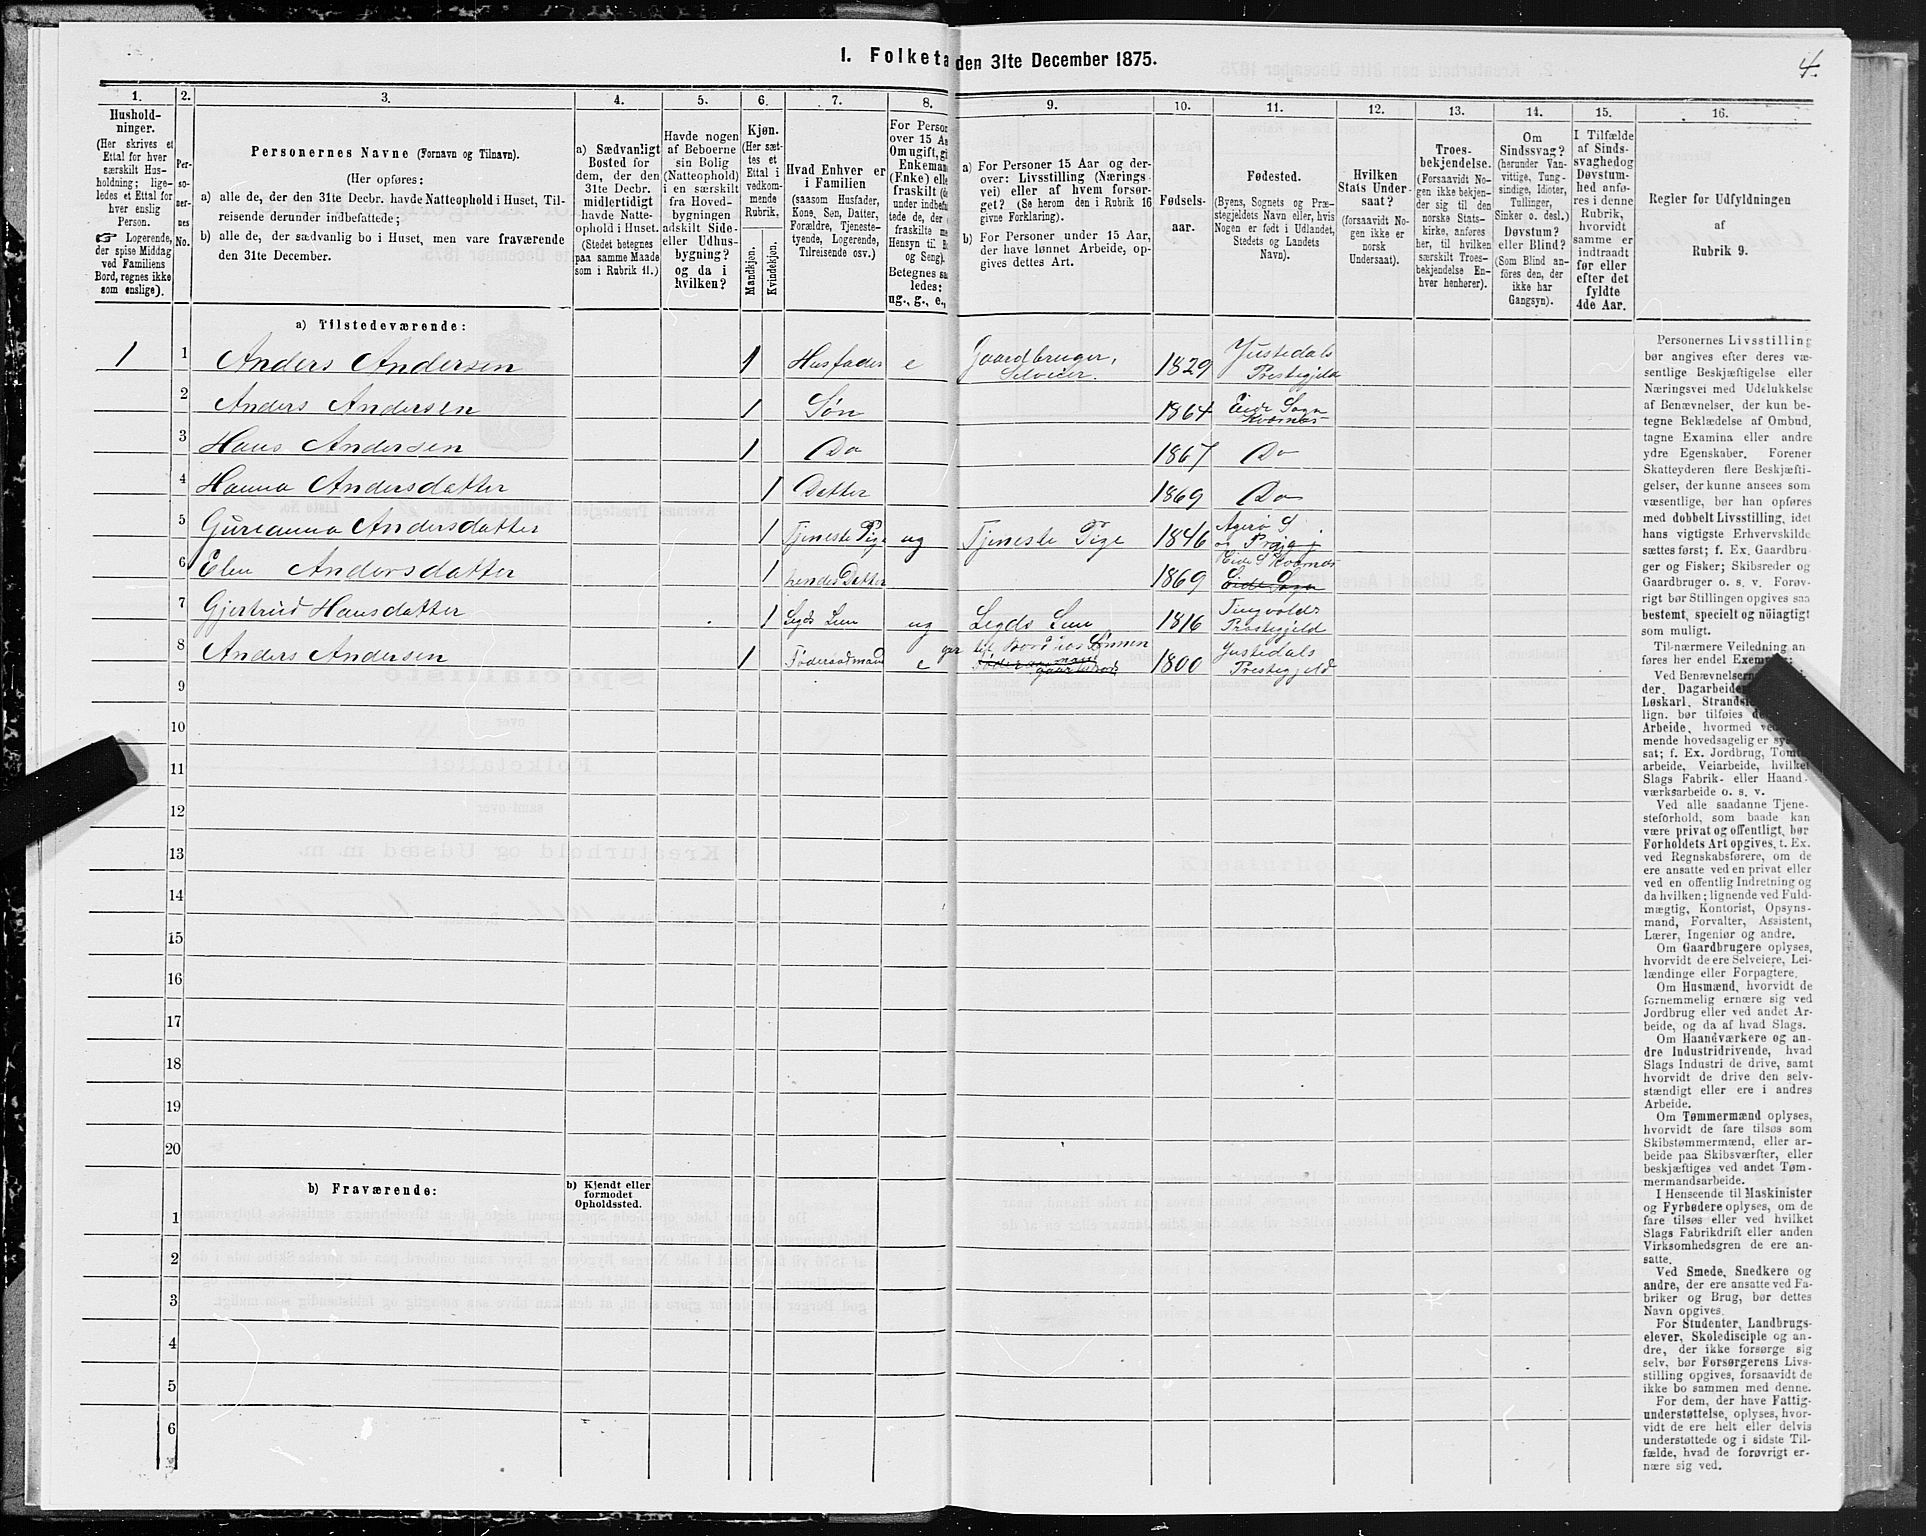 1. Folketa den 31te December 1875.
4.
1.
2.
3.
4.
5.
6.
7.
8.
9.
10.
11.
12.
13.
14.
15.
16.
Hushold-
ninger.
(Her skrives et
Ettal for hver
særskilt Hus-
holdning; lige-
ledes et Ettal for
hver enslig
Person.
☞ Logerende,
der spise Middag
ved Familiens
Bord, regnes ikke
som enslige).
Per-
so-
ner-
nes
No.
Personernes Navne (Fornavn og Tilnavn).
(Her opføres:
a) alle de, der den 31te Decbr. havde Natteophold i Huset, Til-
reisende derunder indbefattede;
b) alle de, der sædvanlig bo i Huset, men vare fraværende
den 31te December.
a) Sædvanligt
Bosted for
dem, der den
31te Decbr.
midlertidigt
havde Natte-
ophold i Huset.
(Stedet betegnes
paa samme Maade
som i Rubrik 11.)
Havde nogen
af Beboerne
sin Bolig
(Natteophold)
i en særskilt
fra Hoved-
bygningen
adskilt Side-
eller Udhus-
bygning?
og da i
hvilken?
Kjøn.
(Her sæt-
tes et
Ettal i
vedkom-
mende
Rubrik.
Mandkjøn.
Kvindekjøn.
Hvad Enhver er
i Familien
(saasom Husfader,
Kone, Søn, Datter,
Forældre, Tjeneste-
tyende, Logerende,
Tilreisende osv.)
For Person
over 15 Aa
Om ugift, gi
Enkeman
(Enke) elle
fraskilt (de
under indbefat
tede de, der e
fraskilte me
Hensyn til Bo
og Seng).
Betegnes saa
ledes:
ug., g., e.,
a) For Personer 15 Aar og der-
over: Livsstilling (Nærings-
vei) eller af hvem forsør-
get? (Se herom den i Rubrik 16
givne Forklaring).
b) For Personer under 15 Aar,
der have lønnet Arbeide, op-
gives dettes Art.
Fødsels-
aar.
Fødested.
(Byens, Sognets og Præ-
stegjeldets Navn eller, hvis
Nogen er født i Udlandet,
Stedets og Landets
Navn).
Hvilken
Stats Under-
saat?
(forsaavidt No-
gen ikke er
norsk
Undersaat).
Troes-
bekjendelse.
(Forsaavidt No-
gen ikke bekjen-
der sig til den
norske Stats-
kirke, anføres
her, til hvilken
særskilt Troes-
bekjendelse En-
hver henhører).
Om
Sindssvag?
(herunder Van-
vittige, Tung-
sindige, Idioter,
Tullinger,
Sinker o. desl.)
Døvstum?
eller Blind?
(Som Blind an-
føres den, der
ikke har
Gangsyn).
I Tilfælde
af Sinds-
svaghed og
Døvstum-
hed anfø-
res i denne
Rubrik,
hvorvidt
samme er
indtraadt
før eller
efter det
fyldte
4de Aar.
Regler for Udfyldningen
af
Rubrik 9.
a) Tilstedeværende:
1 1 Anders Andersen 1 Husfader e Gaardbruger, Selveier. 1829 Justedals Prestegjeld
2 Anders Andersen 1 Søn 1864 Eide Sogn Kværnes
3 Hans Andersen 1 Do 1867 Do
4 Hanna Andersdatter 1 Datter 1869 Do
5 Gurianna Andersdatter 1 Tjeneste Pige ug Tjeneste Pige 1846 Agerø S
6 Elen Andersdatter 1 hendes Datter 1869 Eide S Kværnes Eide Sogn
7 Gjertrud Hansdatter 1 Legds Lem ug Legds Lem 1816 Tingvolds Prestegjeld
8 Anders Andersen 1 Føderaadmand e 1800 Justedals Prestegjeld
9
10
11
12
13
14
15
16
17
18
19
20
b) Fraværende:
b) Kjendt eller
formodet
Opholdssted.
1
2
3
4
5
6
Personernes Livsstilling
bør angives efter deres væ-
sentlige Beskjæftigelse eller
Næringsvei med Udelukkelse
af Benævnelser, der kun be-
tegne Beklædelse af Ombud,
tagne Examina eller andre
ydre Egenskaber. Forener
Skatteyderen flere Beskjæfti-
gelser, der kunne ansees som
væsentlige, bør han opføres
med dobbelt Livsstilling, idet
hans vigtigste Erhvervskilde
sættes først; f. Ex. Gaardbru-
ger og Fisker; Skibsreder og
Gaardbruger o. s. v. Forøv-
rigt bør Stillingen opgives saa
bestemt, specielt og nöiagtigt
som muligt.
Tilnærmere Veiledning an
føres her endel Exempler:
Ved Benævnelsern
der, Dagarbeide
Løskarl, Strands
lign. bør tilføies de
Arbeide, hvormed ve
mende hovedsagelig er sy
sat; f. Ex. Jordbrug, Tomte
arbeide, Veiarbeide, hvilket
Slags Fabrik- eller Haand-
værksarbeide o. s. v.
Ved alle saadanne Tjene-
steforhold, som baade kan
være privat og offentligt, bør
Forholdets Art opgives, t. Ex.
ved Regnskabsførere, om de
ere ansatte ved en privat eller
ved en offentlig Indretning og
da hvilken; lignende ved Fuld-
mægtig, Kontorist, Opsyns-
mand, Forvalter, Assistent,
Lærer, Ingeniør og andre.
Om Gaardbrugere oplyses,
hvorvidt de ere Selveiere, Lei-
lændinge eller Forpagtere.
Om Husmænd, hvorvidt de
fornemmelig ernære sig ved
Jordbrug eller ved andet Ar-
beide, og da af hvad Slags.
Om Haandværkere og an-
dre Industridrivende, hvad
Slags Industri de drive, samt
hvorvidt de drive den selv-
stændigt eller ere i andres
Arbeide.
Om Tømmermænd oplyses,
hvorvidt de fare tilsøs som
Skibstømmermænd, eller ar-
beide paa Skibsværfter, eller
beskjæftiges ved andet Tøm-
mermandsarbeide.
I Henseende til Maskinister
og Fyrbødere oplyses, om de
fare tilsøs eller ved hvilket
Slags Fabrikdrift eller anden
Virksomhedsgren de ere an-
satte.
Ved Smede, Snedkere og
andre, der ere ansatte ved Fa-
briker og Brug, bør dettes
Navn opgives.
For Studenter, Landbrugs-
elever, Skoledisciple og an-
dre, der ikke forsørge sig
selv, bør Forsørgerens Livs-
stilling opgives, forsaavidt de
ikke bo sammen med denne.
For dem, der have Fattig-
understøttelse, oplyses, hvor-
vidt de ere helt eller delvis
understøttede og i sidste Til-
fælde, hvad de forøvrigt er-
nære sig ved.